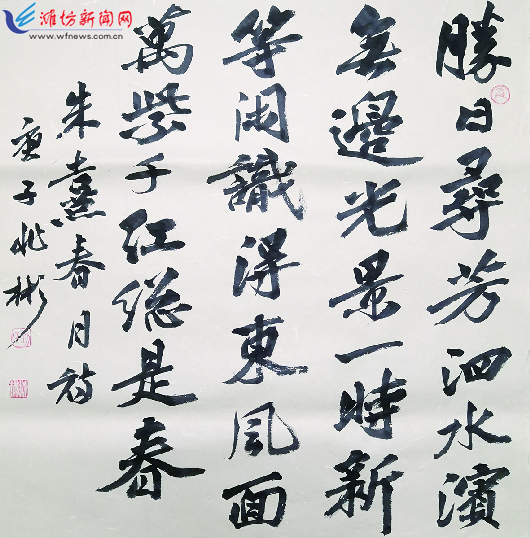 潍坊新闻网
www.wfnews.com.cn
勝日尋芳泗水濱
無邊光景一時新
等闲識得東風面
萬紫千红総是春
朱熹春日詩
庚子兆彬